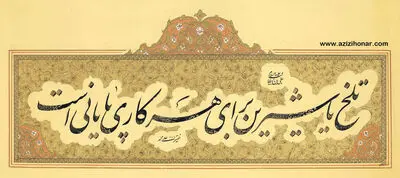 www.azizihonar.com
تلخ یا شیرین برای هر کاری پایانی است